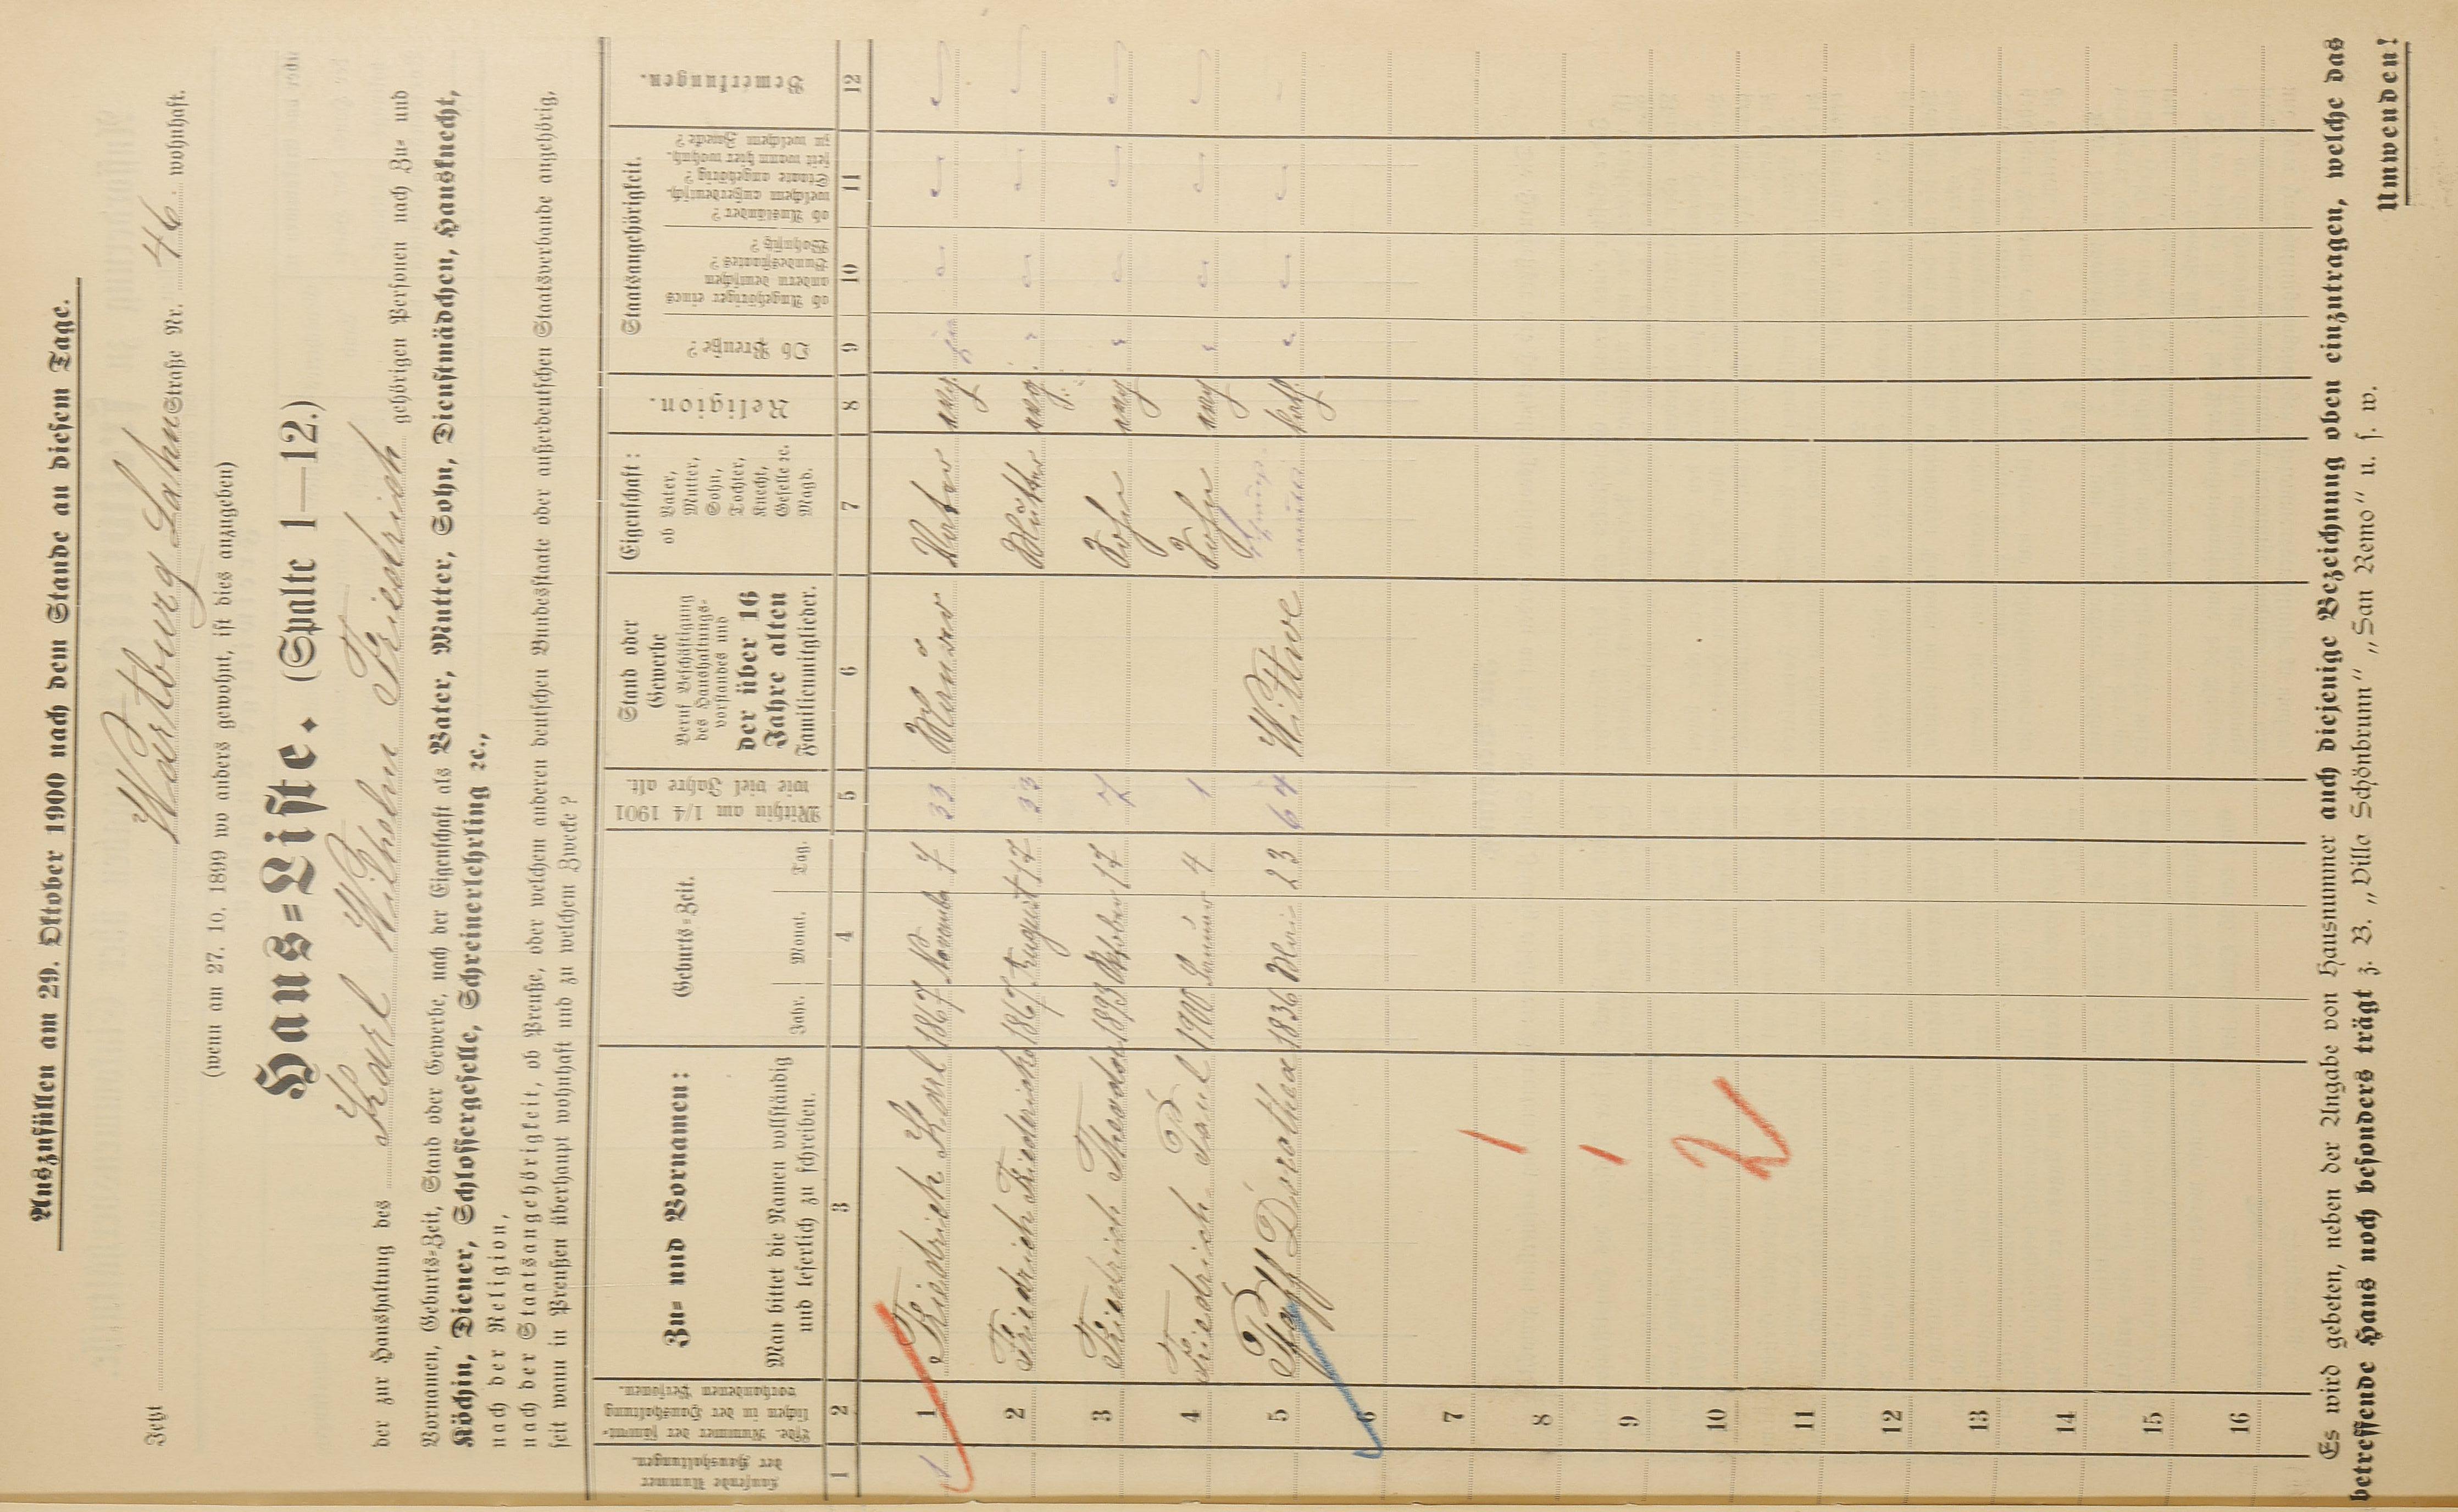 Auszufüllen am 29. Oktober 1900 nach dem Stande an diesem Tage.
Jetzt Wartburg Lahnstraße Nr. 46 wohnhaft.
(wenn am 27. 10. 1899 wo anders gewohnt, ist dies anzugeben)
Haus=Liste. (Spalte 1—12.)
der zur Haushaltung des Karl Wilhelm Friedrich gehörigen Personen nach Zu= und
Vornamen, Geburts=Zeit, Stand oder Gewerbe, nach der Eigenschaft als Vater, Mutter, Sohn, Dienstmädchen, Hausknecht,
Köchin, Diener, Schlossergeselle, Schreinerlehrling ꝛc.,
nach der Religion,
nach der Staatsangehörigkeit, ob Preuße, oder welchem anderen deutschen Bundesstaate oder außerdeutschen Staatsverbande angehörig,
seit wann in Preußen überhaupt wohnhaft und zu welchem Zwecke?
Laufende Nummer der Haushaltungen.
Lfde. Nummer der sämmt=
lichen in der Haushaltung
vorhandenen Personen.
Zu= und Vornamen:
Man bittet die Namen vollständig
und leserlich zu schreiben.
Geburts=Zeit.
Jahr. Monat. Tag.
Mithin am 1/4 1901
wie viel Jahre alt.
Stand oder
Gewerbe
Beruf Beschäftigung
des Haushaltungs=
vorstandes und
der über 16
Jahre alten
Familienmitglieder.
Eigenschaft:
ob Vater,
Mutter,
Sohn,
Tochter,
Knecht,
Geselle ꝛc.
Magd.
Religion.
Staatsangehörigkeit.
Ob Preuße?
ob Angehöriger eines
andern deutschen
Bundesstaates?
Wohnsitz?
ob Ausländer?
welchem außerdeutsch.
Staate angehörig?
seit wann hier wohnh.
zu welchem Zwecke?
Bemerkungen.
1 2 3 4 5 6 7 8 9 10 11 12
1 1 Friedrich Karl 1867 November 7 33 Maurer Vater evg. ja
2 Friedrich Friedericke 1867 August 17 33 Mutter evg.
3 Friedrich Theodor 1893 Oktober 17 7 Sohn evg
4 Friedrich Paul 1900 Januar 4 1 Sohn evg
5 Pfaff Dorothea 1836 Mai 23 64 Wittwe Schwieger
mutter kath.
6
7
8
9
10
11
12
13
14
15
16
2
Es wird gebeten, neben der Angabe von Hausnummer auch diejenige Bezeichnung oben einzutragen, welche das
betreffende Haus noch besonders trägt z. B. „Villa Schönbrunn" „San Remo" u. s. w.
Umwenden!